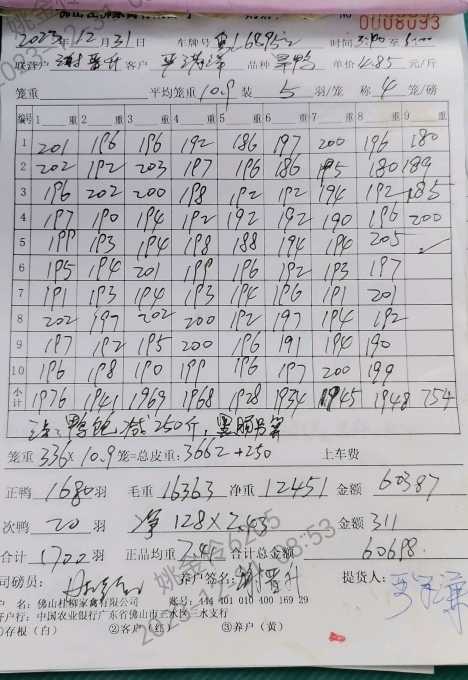 0008093
2023年12月31日 车牌号 时间 至
联营户 谢晋升 客户 品种 单价 4.85 元/斤
笼重 平均笼重 10.9 装 5 羽/笼 称 4 笼/磅
编号 1 重 2 重 3 重 4 重 5 重 6 重 7 重 8 重 9 重
1 201 196 196 192 186 197 200 196 180
2 202 192 203 197 196 186 195 180 189
3 196 202 200 198 192 192 194 192 185
4 197 190 194 192 192 192 190 196 200
5 199 193 194 198 188 194 194 205
6 195 194 201 199 196 192 193 197
7 191 193 194 193 194 196 191 201
8 202 197 202 200 192 197 194 192
9 197 192 195 200 196 191 194 190
10 196 198 190 199 196 197 200 199
小计 1976 1941 1969 1968 1928 1934 1945 1948 754
注: 鸭 250斤,
笼重 336 × 10.9 笼=总皮重: 3662+250 上车费
正鸭 1680 羽 毛重 16363 净重 12451 金额 60387
次鸭 20 羽 净 128×2.43 金额 311
合计 1700 羽 正品均重 7.41 合计总金额 60698
司磅员: 养户签名: 谢晋升 提货人:
户 名: 佛山杜柳家禽有限公司 账号: 444 401 010 400 169 29
开户行: 中国农业银行广东省佛山市三水区三水支行
①存根（白） ②客户（红） ③养户（黄）